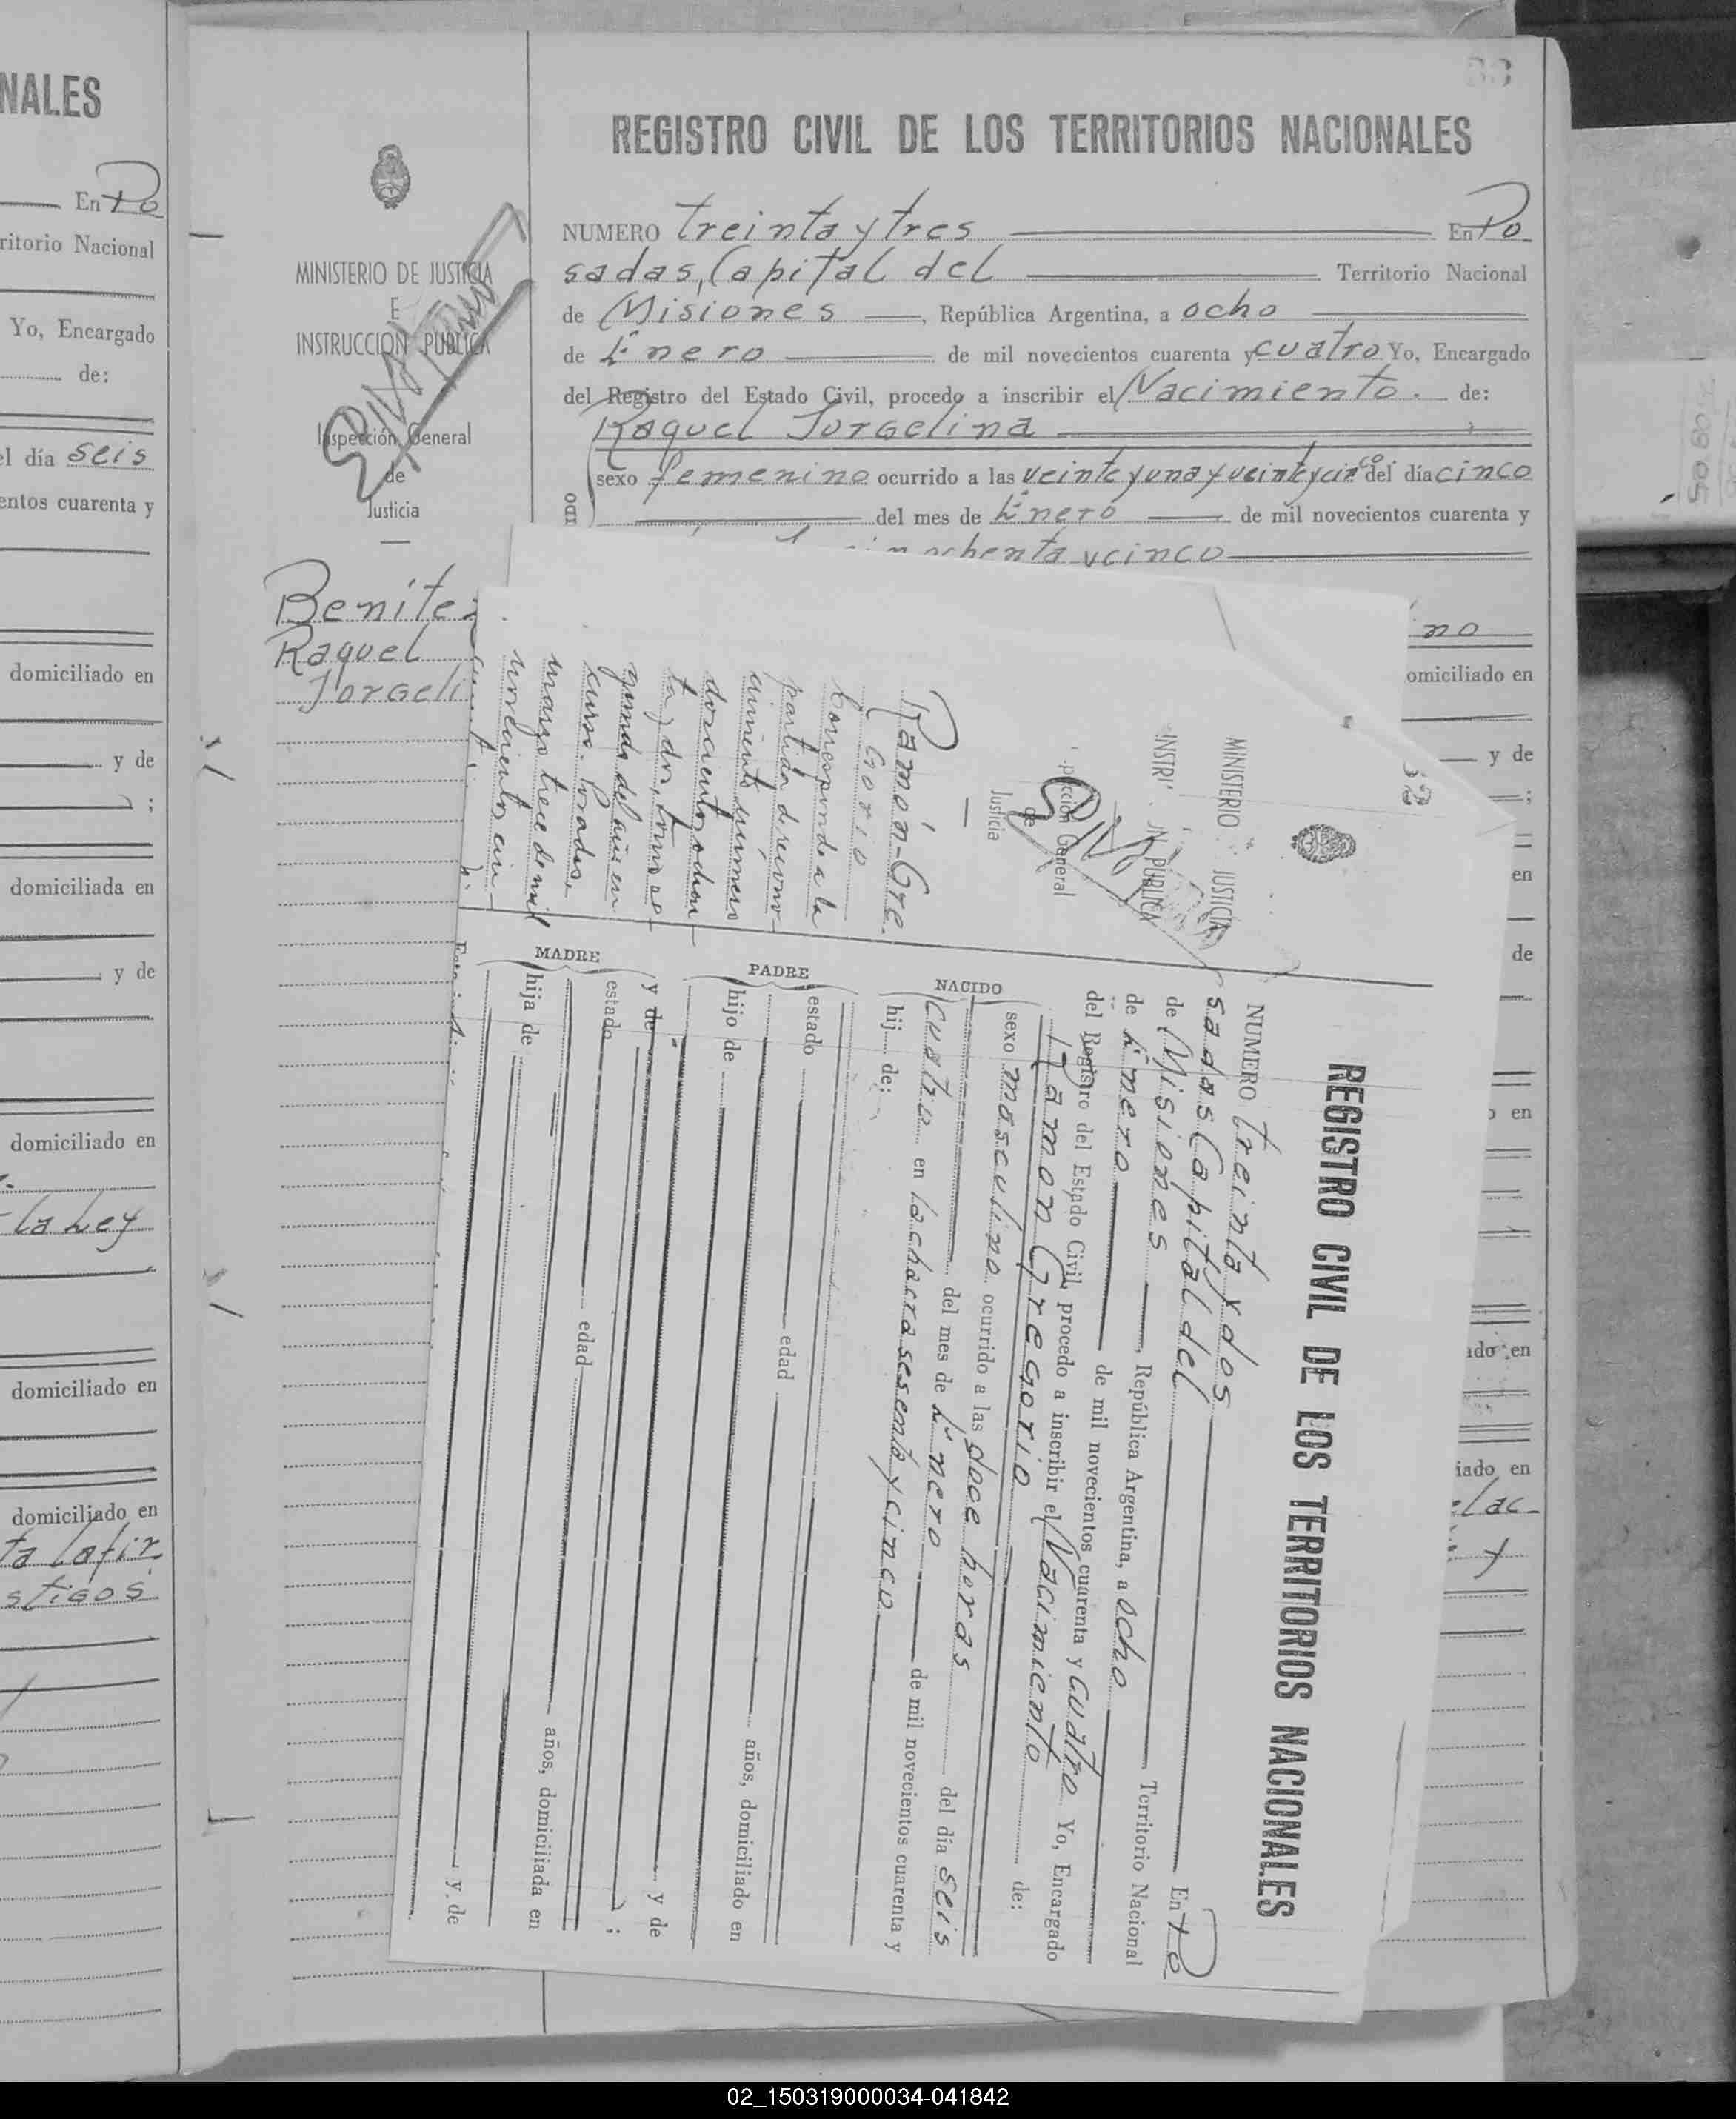 NALES
En Po
ritorio Nacional
Yo, Encargado
de:
el día seis
entos cuarenta y
domiciliado en
y de
;
domiciliada en
y de
domiciliado en
la Ley
domiciliado en
domiciliado en
ta la fir
stigos
33
REGISTRO CIVIL DE LOS TERRITORIOS NACIONALES
MINISTERIO DE JUSTICIA
E
INSTRUCCION PUBLICA
Inspección General
de
Justicia
Benitez
Raquel
Jorgeli
NUMERO treinta y tres En Po
sadas, Capital del Territorio Nacional
de Misiones, República Argentina, a ocho
de Enero de mil novecientos cuarenta y cuatro Yo, Encargado
del Registro del Estado Civil, procedo a inscribir el Nacimiento. de:
Raquel Jorgelina
sexo femenino ocurrido a las veinte y una y veinte y cinco del día cinco
del mes de Enero de mil novecientos cuarenta y
ochenta y cinco
no
omiciliado en
y de
;
en
de
o en
ado en
iado en
elac-
y
32
MINISTERIO JUSTICIA
INSTR N PUBLICA
pección General
de
Justicia
Ramón Gre-
gorio
Corresponde a la
partida de recono-
cimiento número
doscientos ochen-
ta y dos, tomo se-
gundo del año en
curso. Posadas,
marzo trece de mil
novecientos cua-
REGISTRO CIVIL DE LOS TERRITORIOS NACIONALES
NUMERO treinta y dos En Po
sadas Capital del Territorio Nacional
de Misiones, República Argentina, a ocho
de Enero de mil novecientos cuarenta y cuatro Yo, Encargado
del Registro del Estado Civil, procedo a inscribir el Nacimiento de:
Ramon Gregorio
NACIDO
sexo masculino ocurrido a las doce horas del día seis
del mes de Enero de mil novecientos cuarenta y
cuatro en la chacra sesenta y cinco
hij de:
PADRE
estado edad años, domiciliado en
hijo de y de
y de ;
MADRE
estado edad años, domiciliada en
hija de y de
02_150319000034-041842